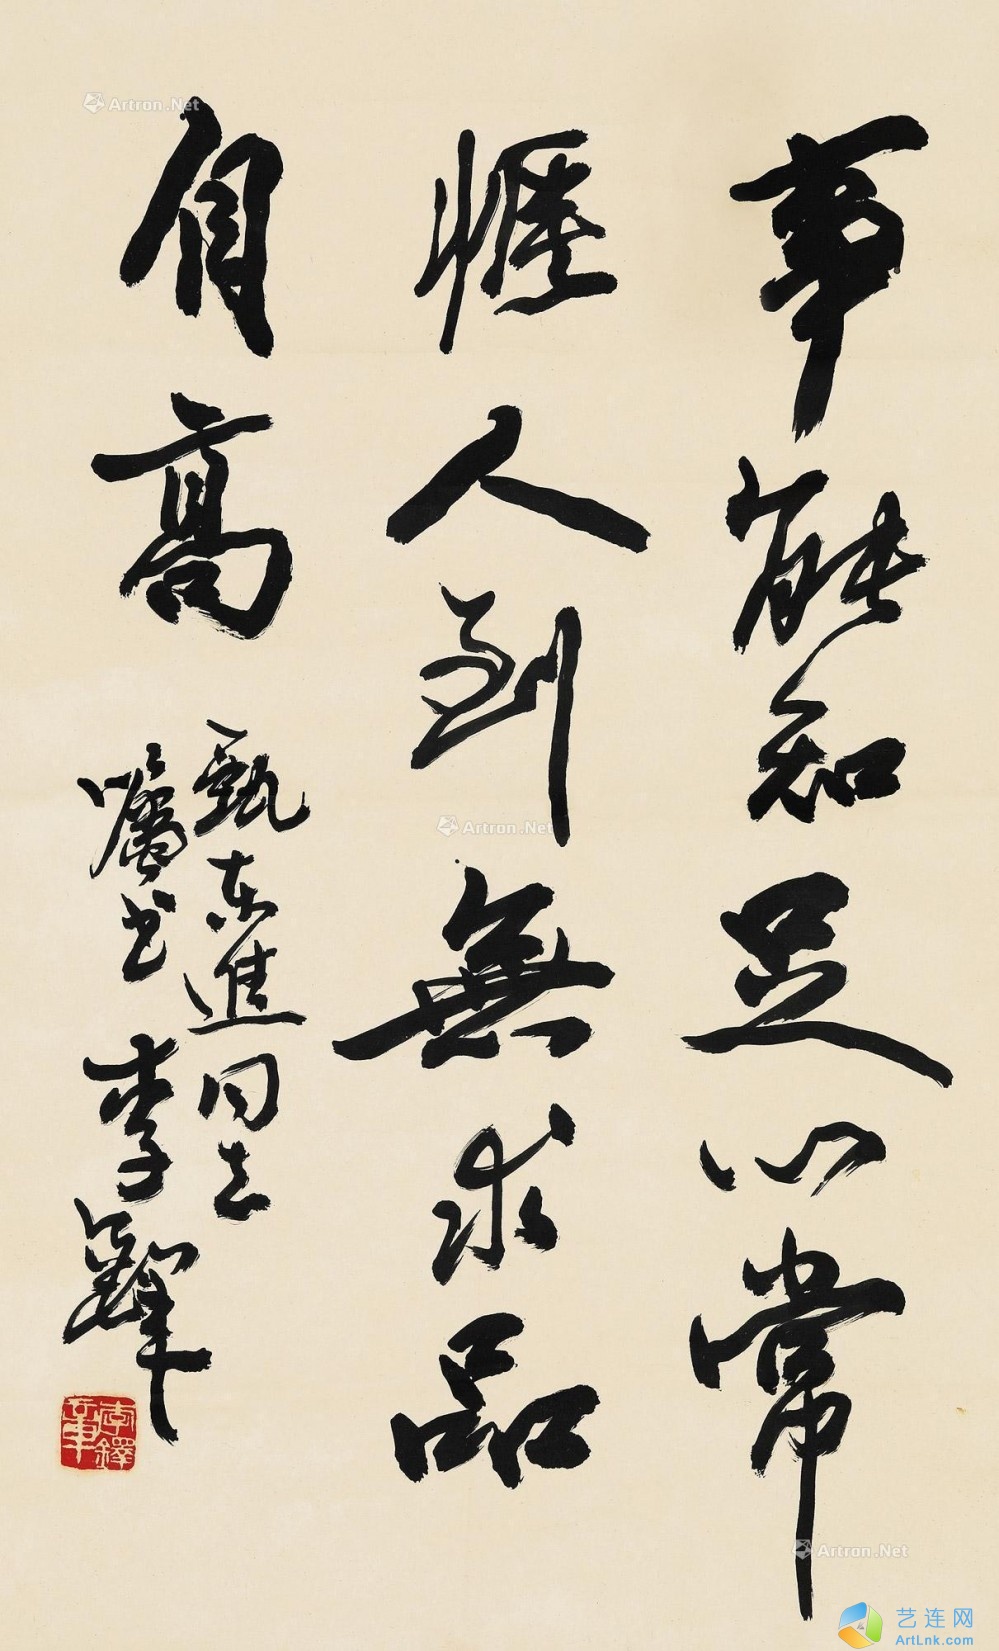 事能知足心常
惬人到無求品
自高
甄东進同志
嘱书
李鐸
李鐸
之章
Artron.Net
Artron.Net
Artron.Net
艺连网
ArtLnk.com